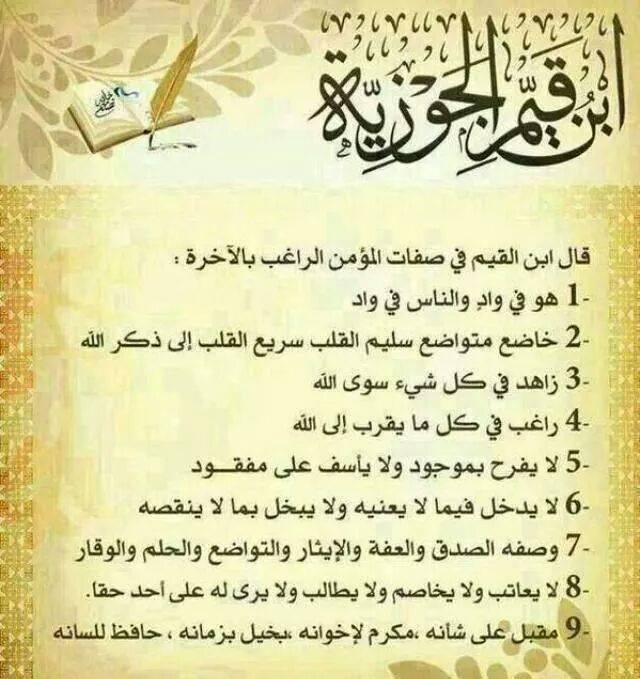 ابن قيم الجوزية
قال ابن القيم في صفات المؤمن الراغب بالآخرة :
1- هو في وادٍ والناس في واد
2- خاضع متواضع سليم القلب سريع القلب إلى ذكر الله
3- زاهد في كل شيء سوى الله
4- راغب في كل ما يقرب إلى الله
5- لا يفرح بموجود ولا يأسف على مفقــود
6- لا يدخل فيما لا يعنيه ولا يبخل بما لا ينقصه
7- وصفه الصدق والعفة والإيثار والتواضع والحلم والوقار
8- لا يعاتب ولا يخاصم ولا يطالب ولا يرى له على أحد حقا.
9- مقبل على شأنه ،مكرم لإخوانه ،بخيل بزمانه ، حافظ للسانه